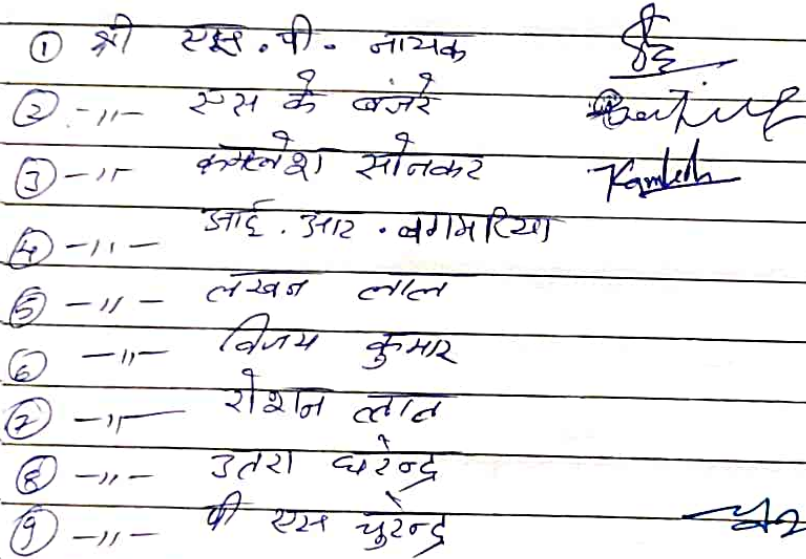 ① श्री एस. पी. नायक
② -〃- एस के बंजरे
③ -〃- कमलेश सोनकर Kamlesh
④ -〃- आई. आर. बगमरिया
⑤ -〃- लखन लाल
⑥ -〃- विजय कुमार
⑦ -〃- रोशन लाल
⑧ -〃- उतरा धरेन्द्र
⑨ -〃- पी एस चुरेन्द्र